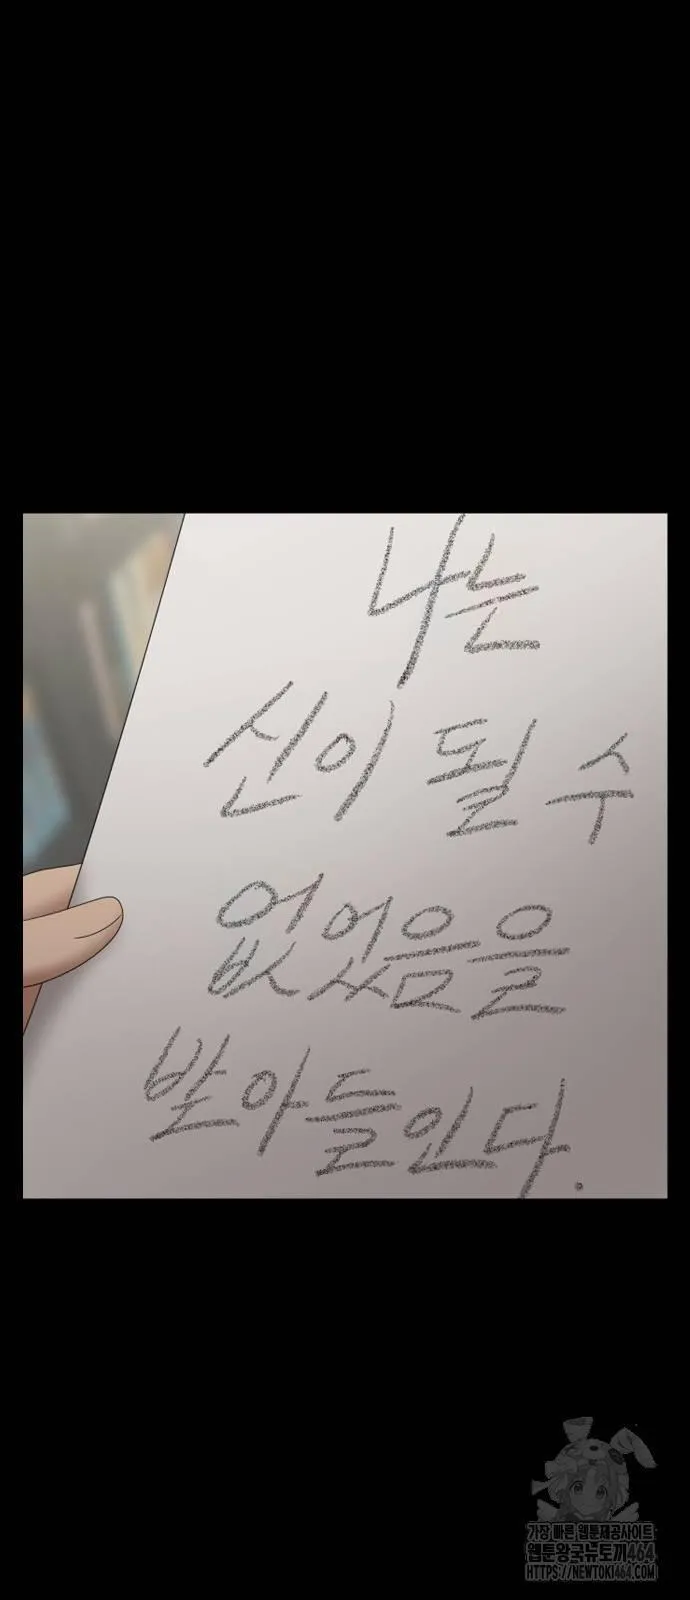 나는
신이 될 수
없었음을
받아들인다.
가장 빠른 웹툰제공사이트
웹툰왕국뉴토끼464
HTTPS://NEWTOKI464.COM